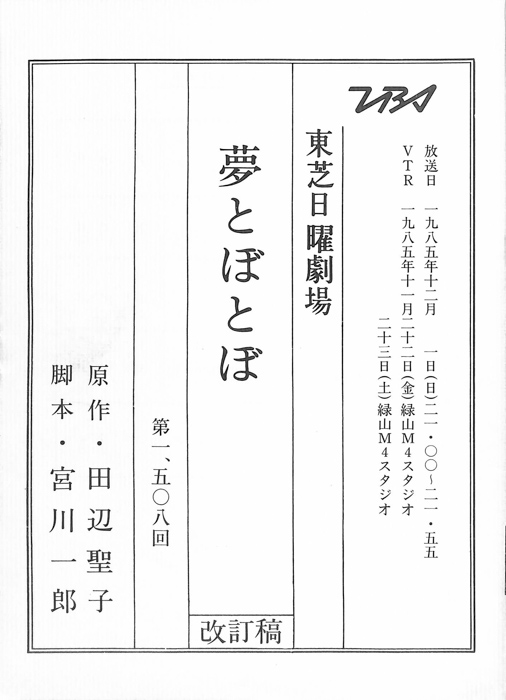 TBS
放送日　一九八五年十二月　一日(日)二一・〇〇～二一・五五
VTR　一九八五年十一月二十二日(金)緑山M4スタジオ
二十三日(土)緑山M4スタジオ
東芝日曜劇場
夢とぼとぼ
改訂稿
第一、五〇八回
原作・田辺聖子
脚本・宮川一郎